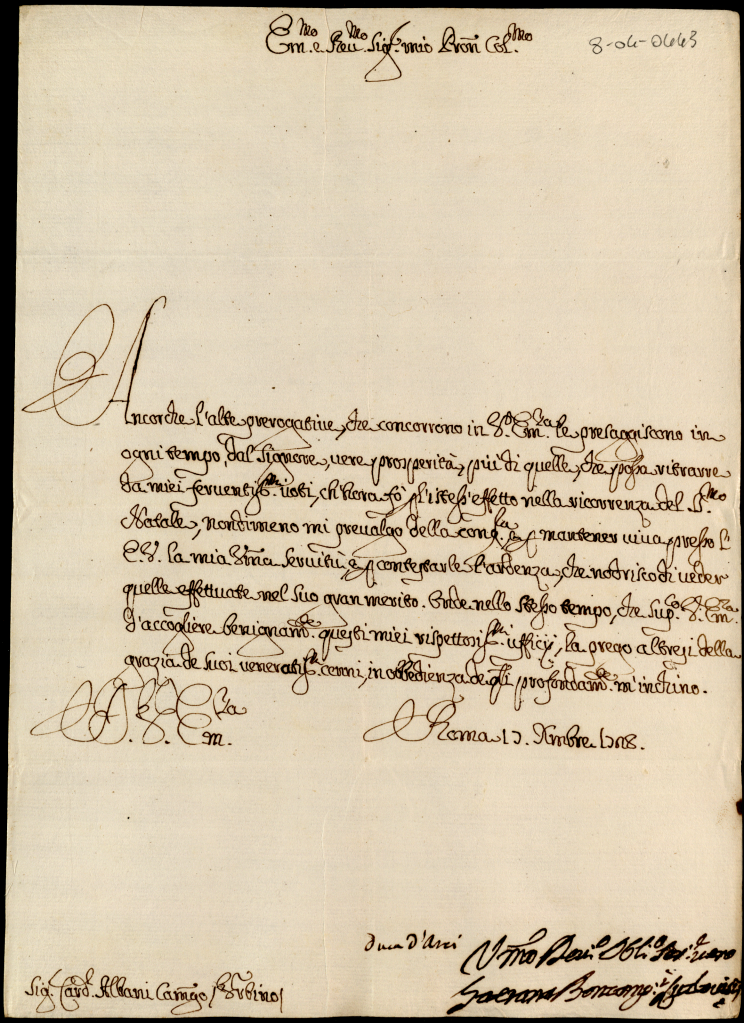 Em.mo e Reu.mo Sig.r mio Pron Col.mo
8-04-0443
Ancorche l'alte prerogatiue, che concorrono in V.ra Em.za le presaggiscono in
ogni tempo, dal Signore, uere prosperità, più di quelle, che possa ritrarre
da miei feruentiss.mi uoti, ch'hora fò p l'istess'effetto nella ricorrenza del S.mo
Natale, nondimeno mi preualgo della cong.ra, e p mantener uiua presso l'
E.V. la mia Uma seruitù, e p contestarle l'ardenza, che nodrisco di ueder
quelle effettuate nel Suo gran merito. Onde nello stesso tempo, che sup.co V.Em.za
d'accogliere benignam.te questi miei rispettosiss.mi ufficij, la prego altresì della
grazia de suoi ueneratiss.mi cenni, in obbedienza de qli profondam.te m'inchino.
D. V. Em.za
Roma 17. Xmbre 1718.
Duca D'Arci
Vmo Deu.o Obli.o Ser.re uero
Gaetano Boncomp.i Ludouisi
Sig.r Card. Albani Camgo /Vrbino/